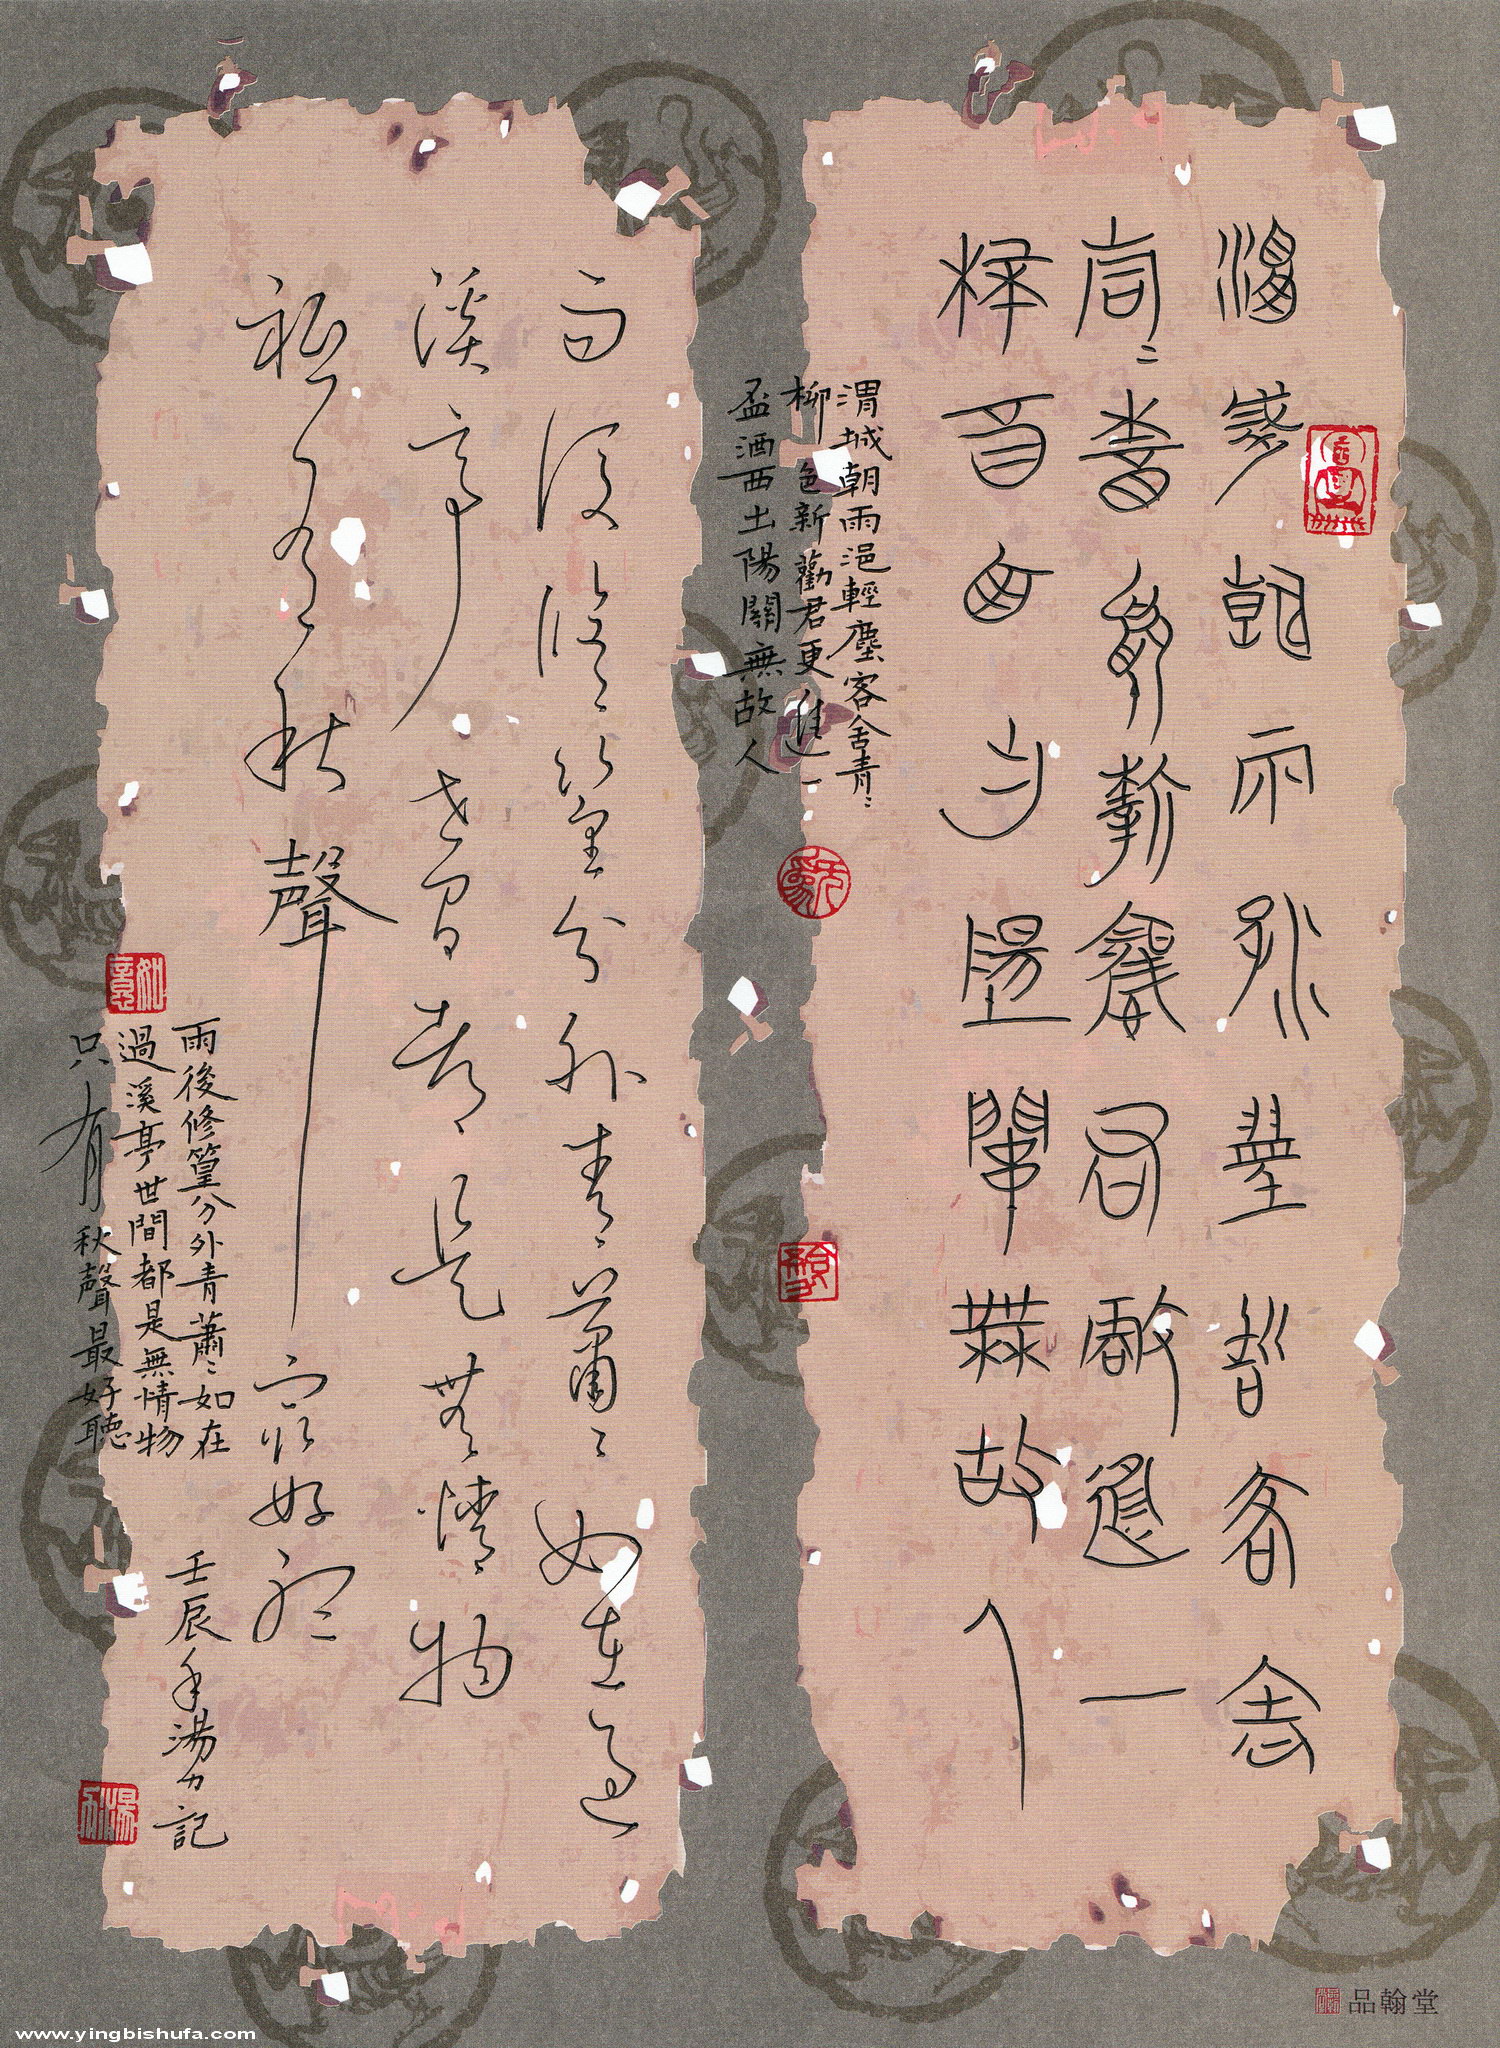 渭城朝雨浥輕塵客舍
青〻柳色新勸君更進一
杯酒西出陽關無故人
渭城朝雨浥輕塵客舍青〻
柳色新勸君更進一
盃酒西出陽關無故人
雨後修篁分外青蕭〻如在過
溪亭世間都是無情物
祗有秋聲最好聽
雨後修篁分外青蕭〻如在
過溪亭世間都是無情物
只有秋聲最好聽
壬辰年湯力記
品翰堂
www.yingbishufa.com